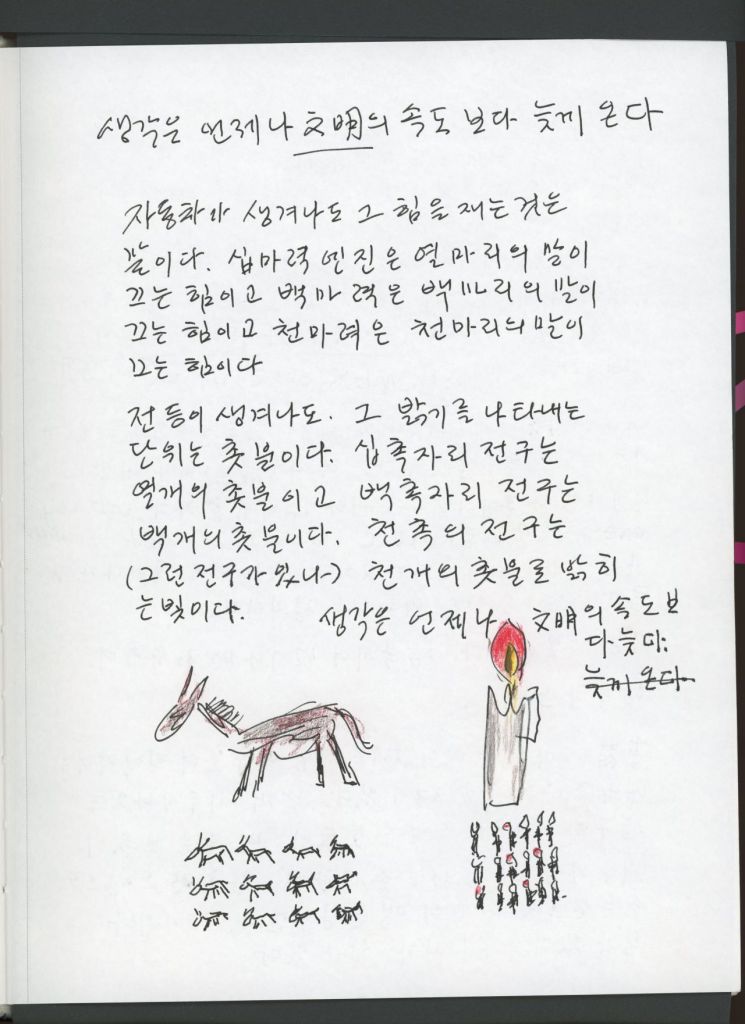 생각은 언제나 文明의 속도 보다 늦게 온다
자동차가 생겨나도 그 힘을 재는 것은
말이다. 십마력 엔진은 열마리의 말이
끄는 힘이고 백마력은 백마리의 말이
끄는 힘이고 천마력은 천마리의 말이
끄는 힘이다
전등이 생겨나도. 그 밝기를 나타내는
단위는 촛불이다. 십촉자리 전구는
열개의 촛불이고 백촉자리 전구는
백개의 촛불이다. 천촉의 전구는
(그런 전구가 있나~) 천개의 촛불로 밝히
는 빛이다.
생각은 언제나 文明의 속도보
다 늦다.
늦게 온다